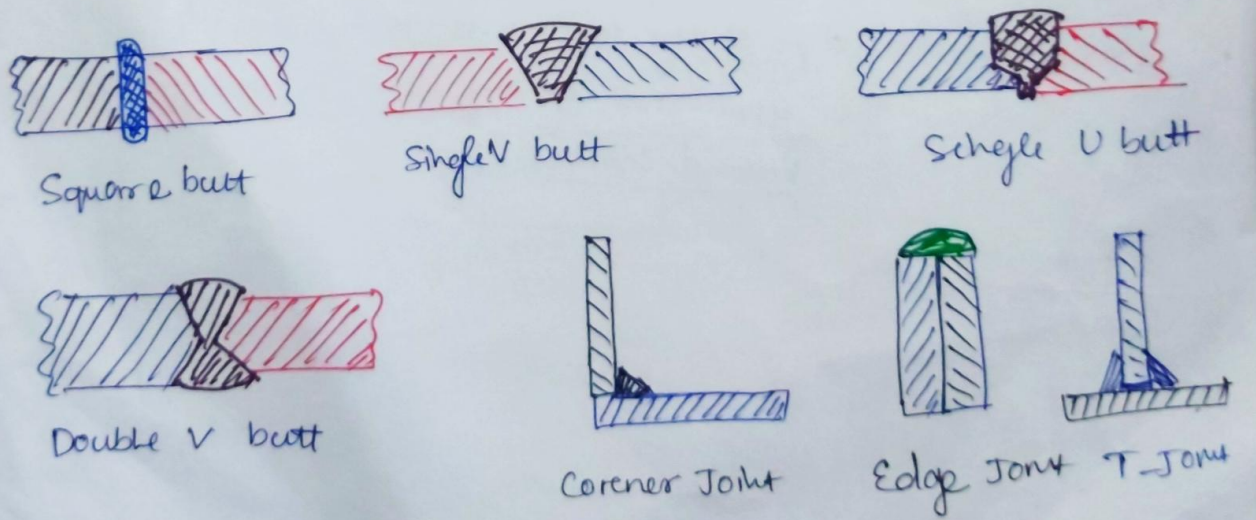 Square butt
Single V butt
Single U butt
Double V butt
Corener Joint
Edge Joint
T-Joint